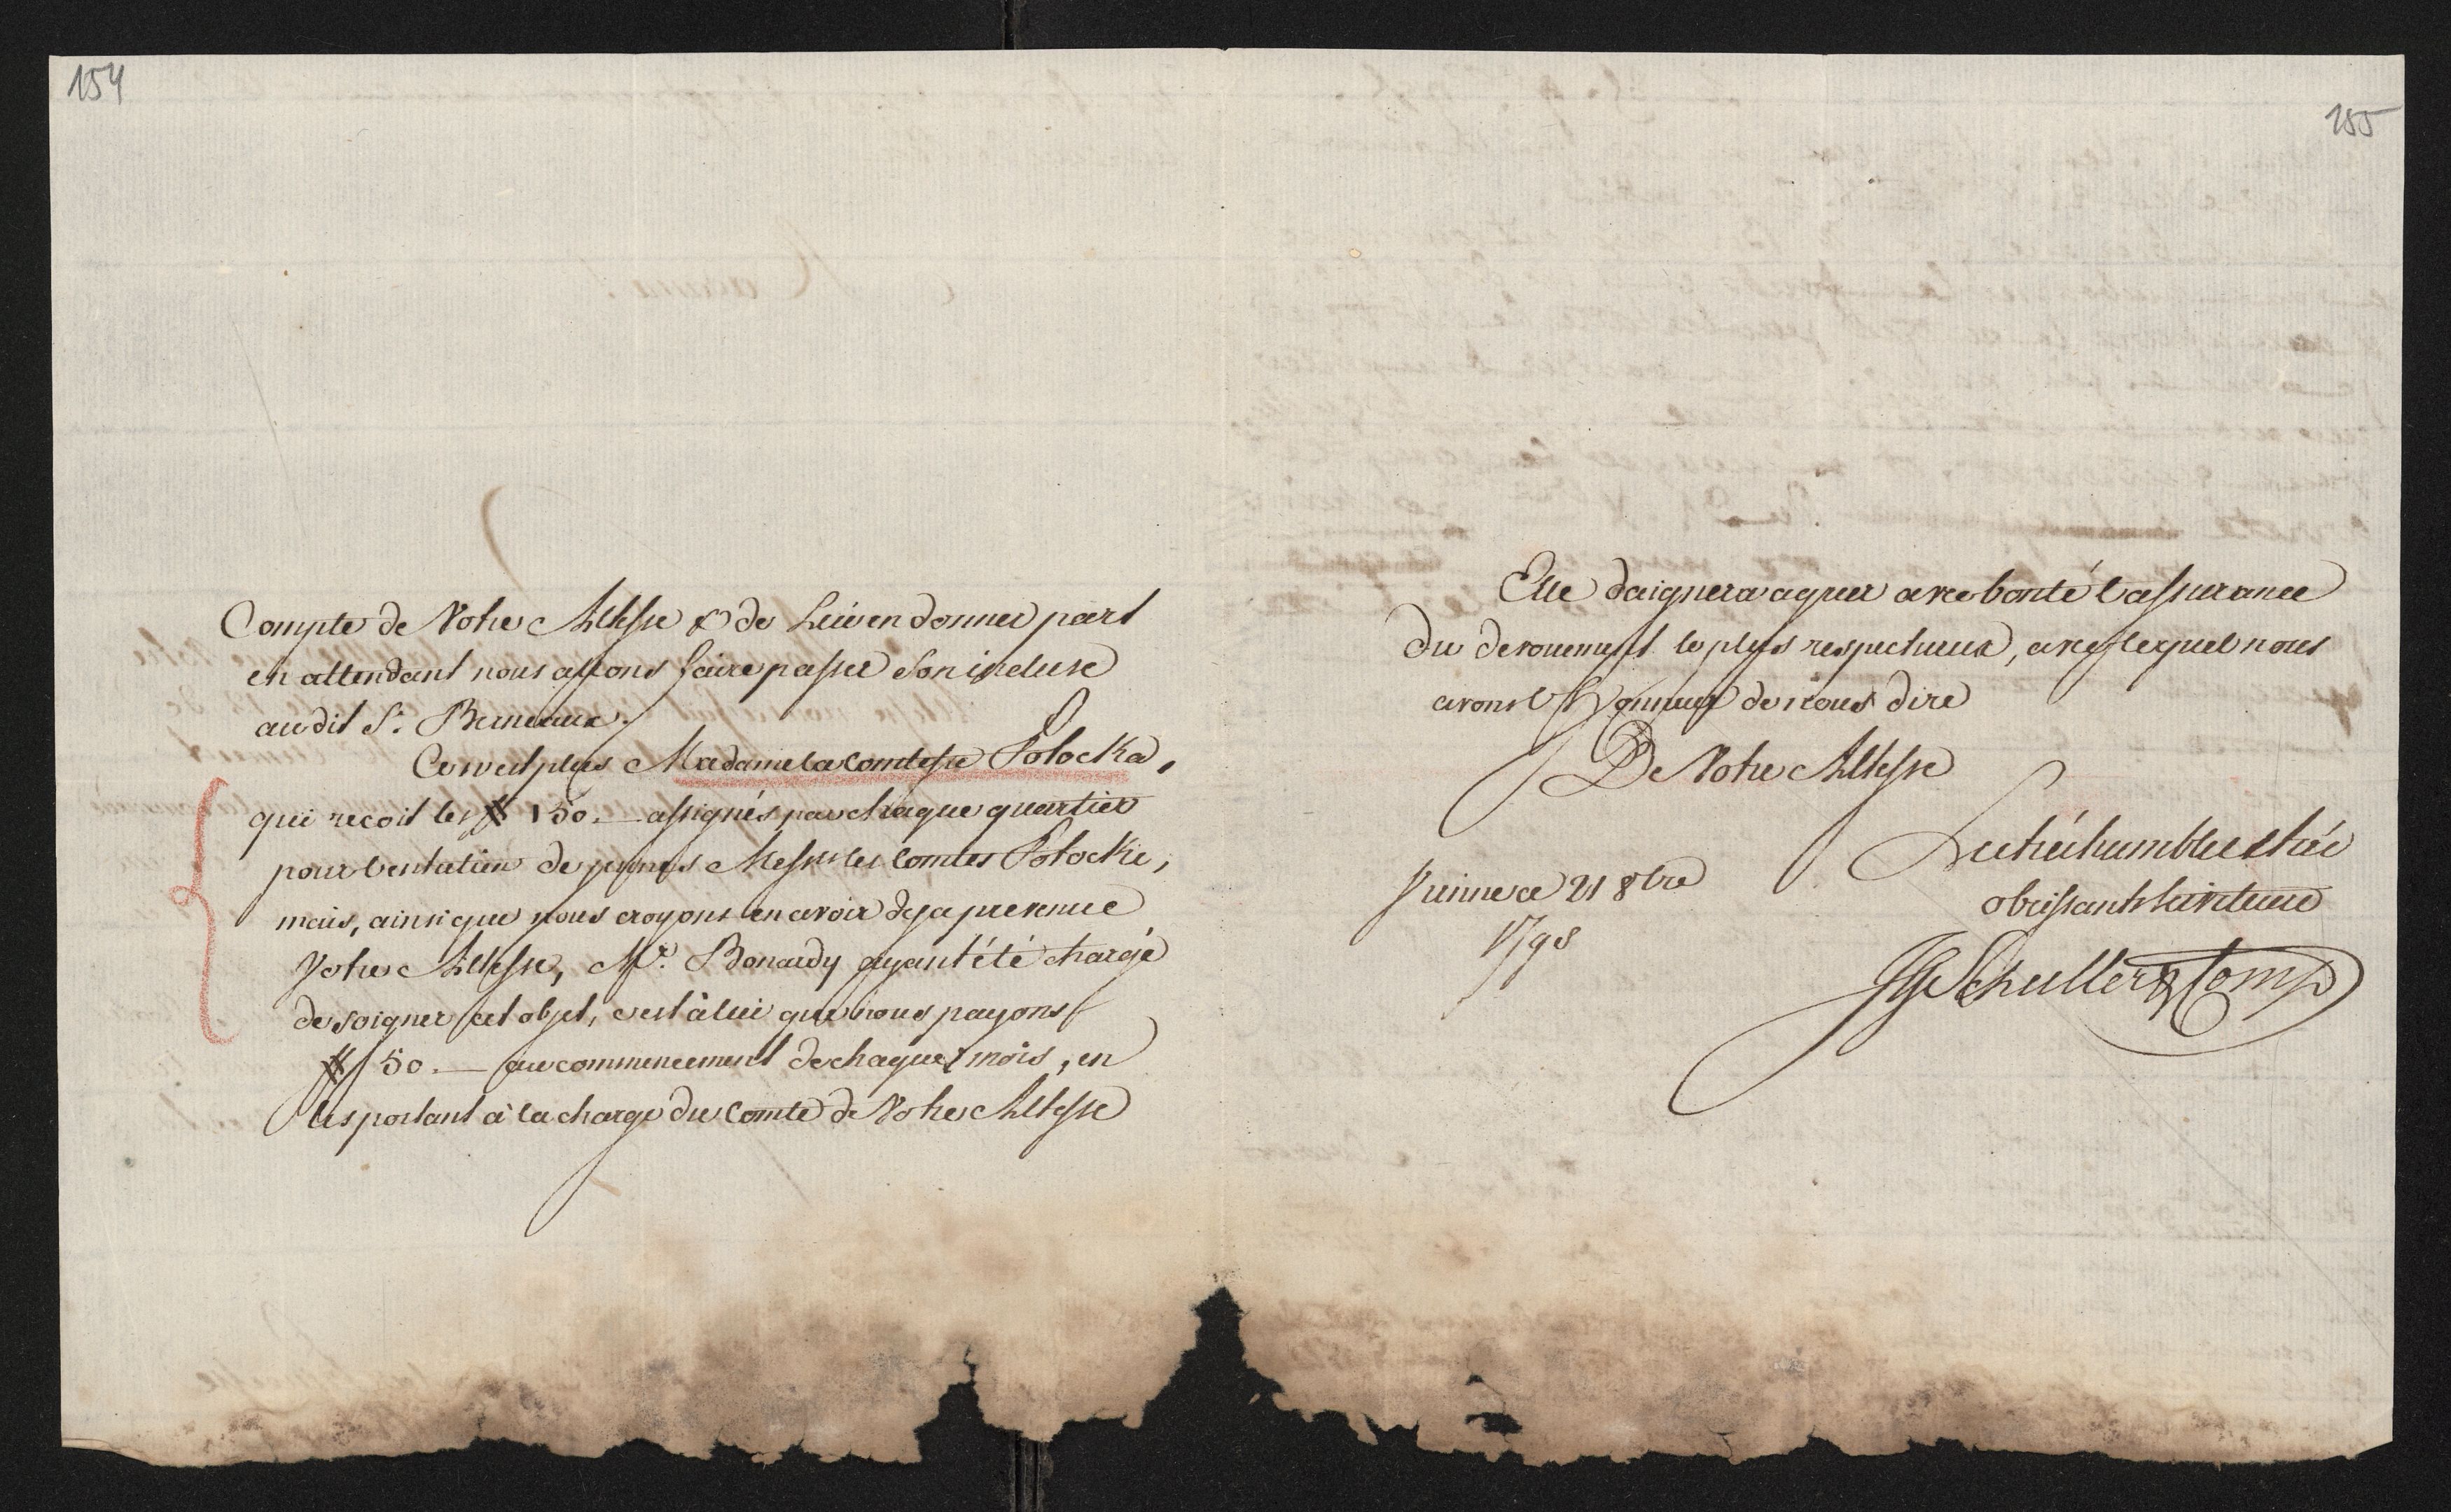 154
Compte de Votre Altesse & de Lui en donner part
en attendant nous allons faire passer Son incluse
au dit Sr. Bureaux.
Ce n'est plus Madame la Comtesse Potocka,
qui reçoit les # 150.— assignés par chaque quartier
pour l'entretien de jeunes Messrs les Comtes Potocki,
mais, ainsi que nous croyons en avoir deja prevenue
Votre Altesse, Mr. Bonardy ayant été chargé
de soigner cet objet, c'est à lui que nous payons
# 50.— au commencement de chaque mois, en
les portant à la charge du Comte de Votre Altesse
155
Elle daignera agréer avec bonté l'assurance
du devouement le plus respectueux, avec lequel nous
avons l'Honneur de nous dire
De Votre Altesse
Les très humbles & très
obeissants serviteurs
Vienne ce 21 8bre
1798
Schuller & Comp